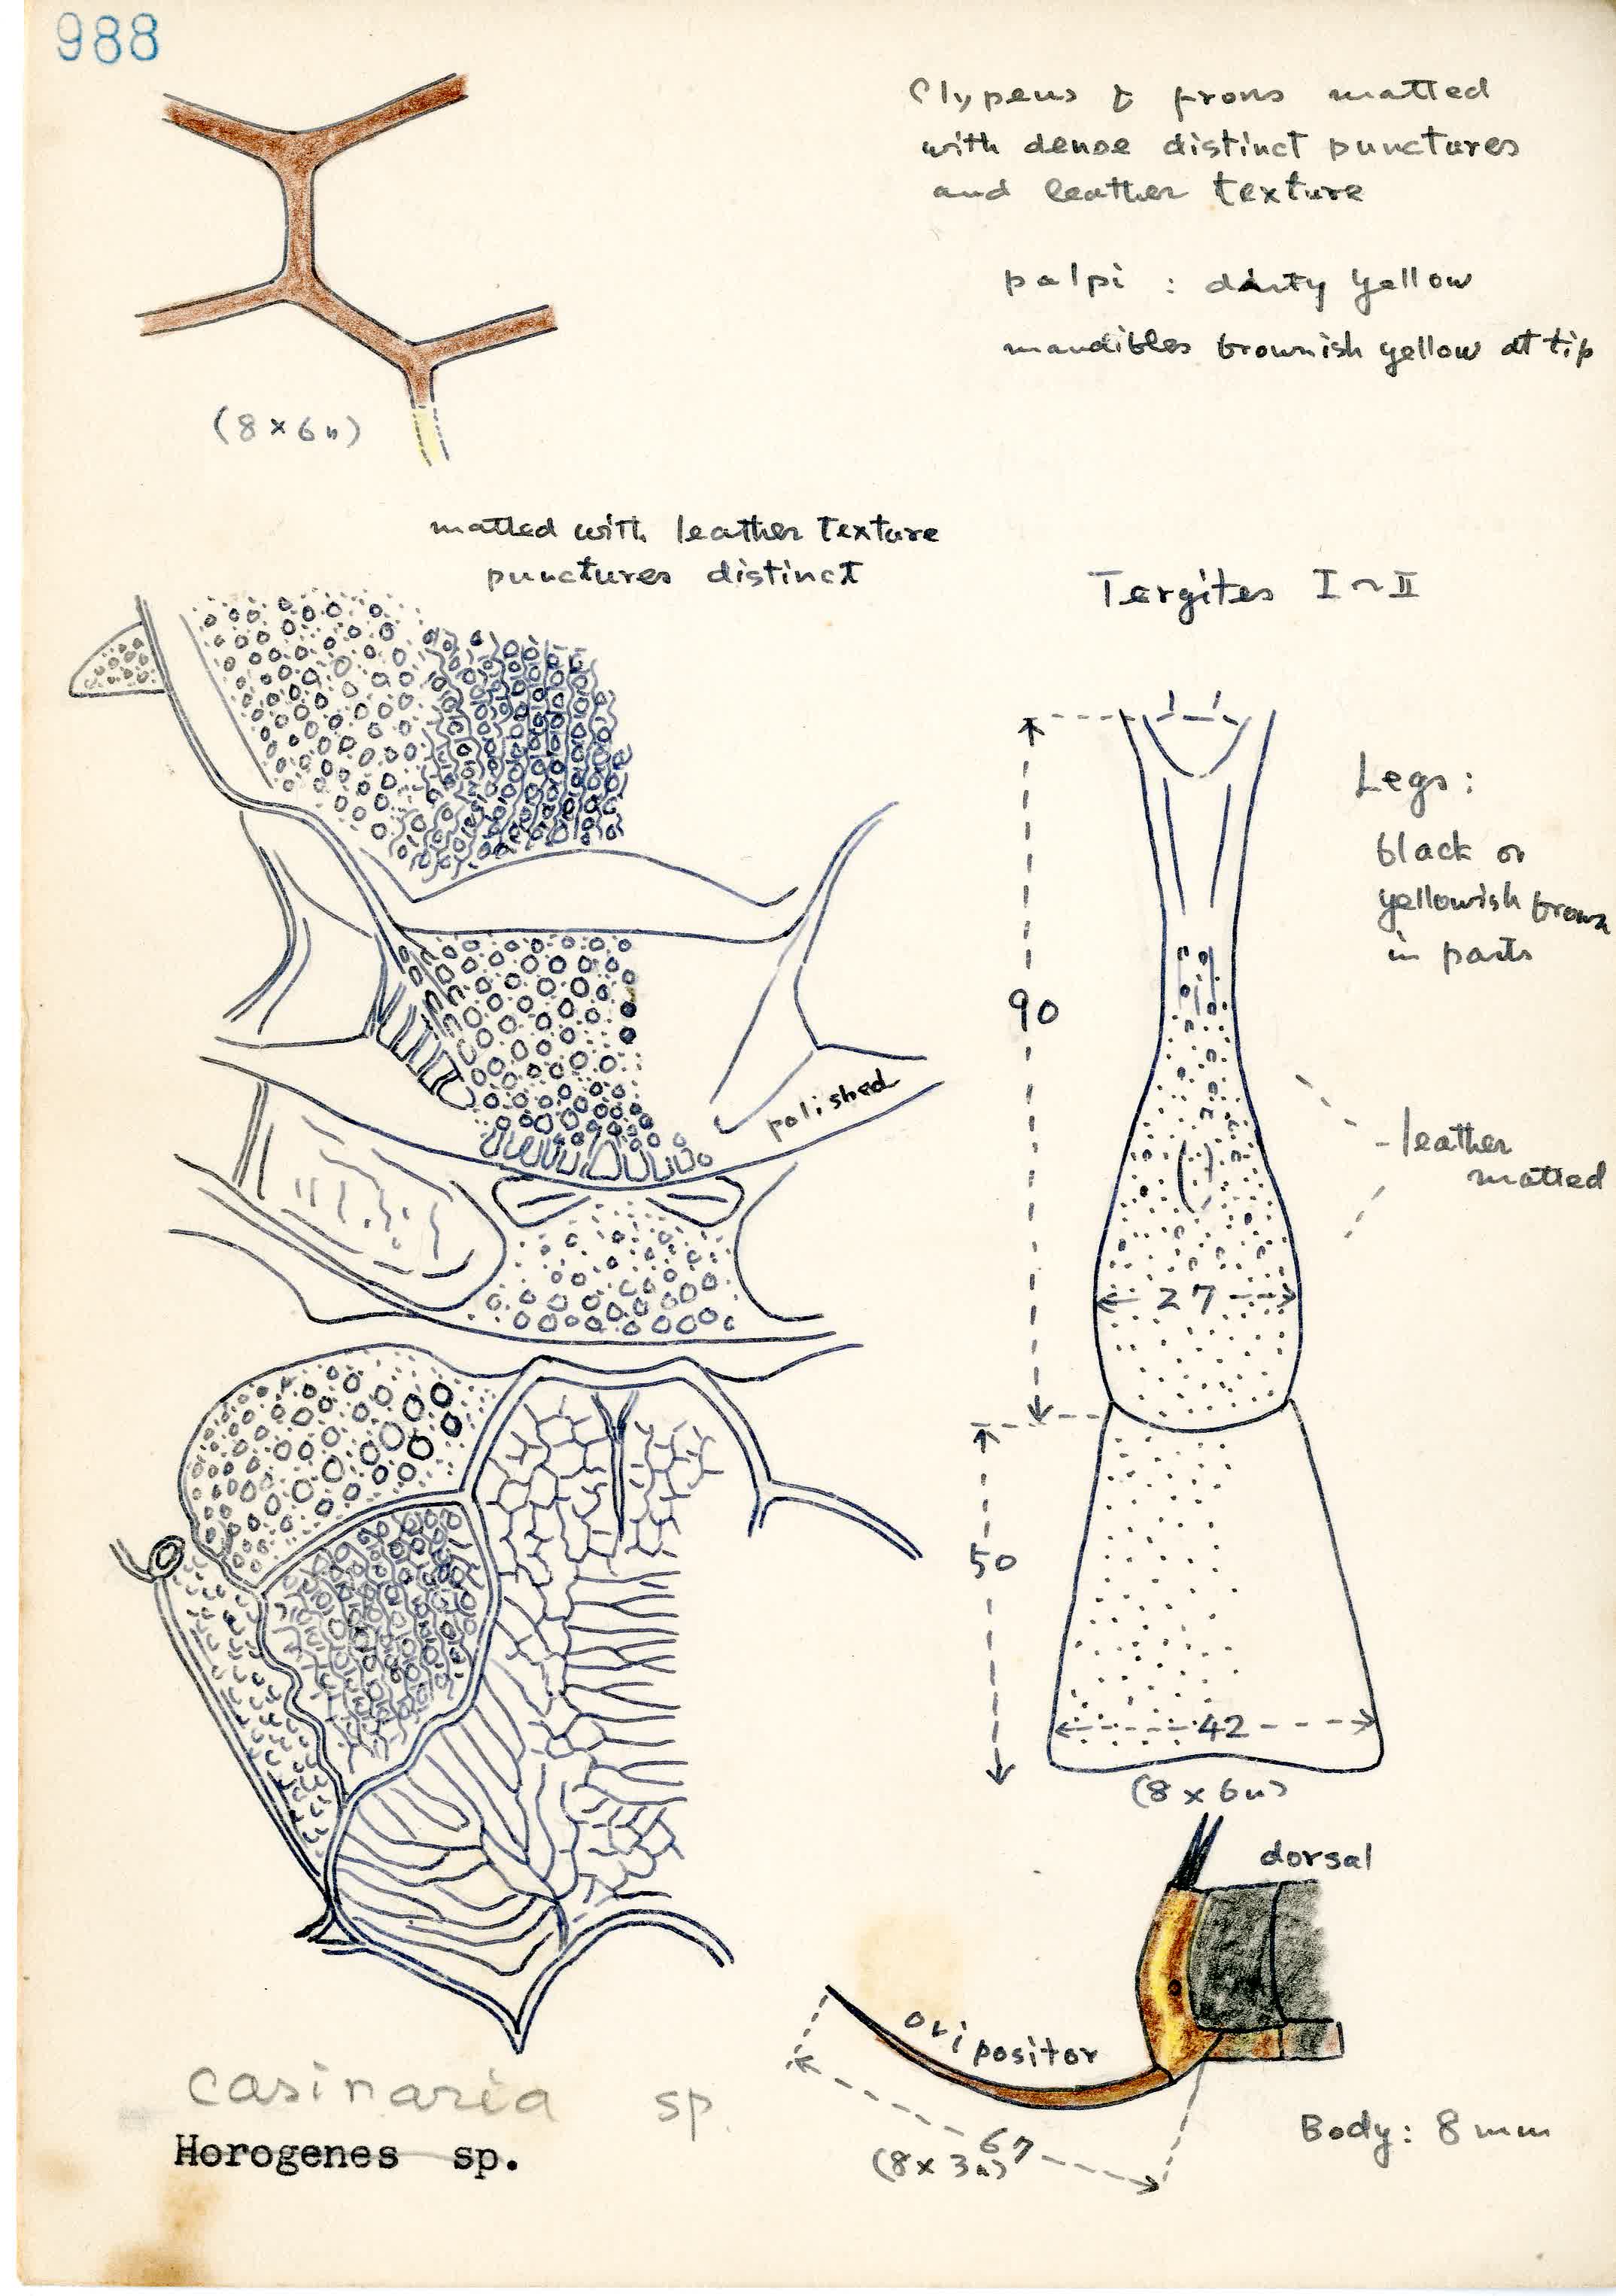 988
Clypeus & frons matted
with dense distinct punctures
and leather texture
palpi : dirty yellow
mandibles brownish yellow at tip
(8 x 6n)
matted with leather texture
punctures distinct
Tergites I ~ II
Legs :
black or
yellowish brown
in parts
90
polished
leather
matted
27
50
42
(8 x 6n)
dorsal
ovipositor
67
(8 x 3n)
Body: 8 mm
Casinaria sp.
Horogenes sp.